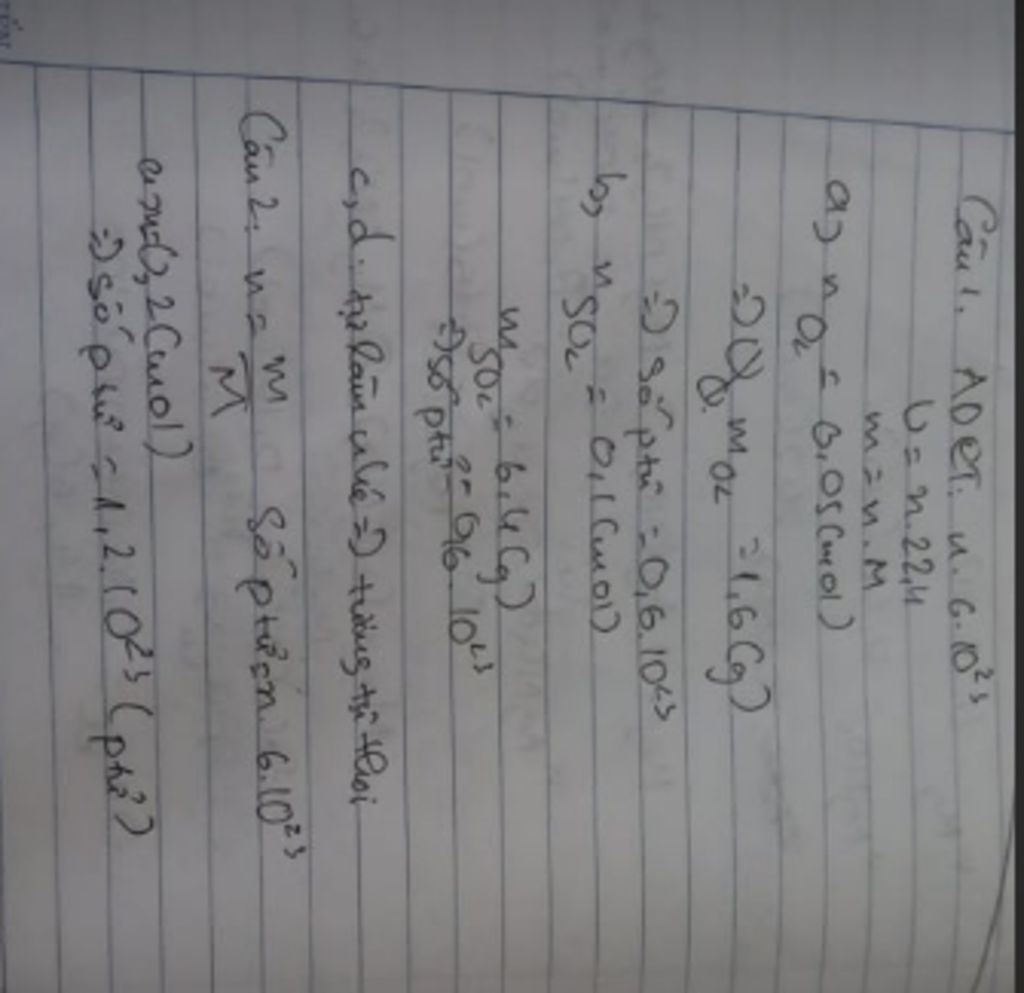 Câu 1. ADCT: n.6.10²³
V = n.22,4
m = n.M
a, n O₂ = 0,05 (mol)
=> m O₂ = 1,6 (g)
=> số ptử = 0,6.10²³
b, n SO₂ = 0,1 (mol)
m SO₂ = 6,4 (g)
=> số ptử = 0,6.10²³
c, d. tự làm nhé => tương tự thôi
Câu 2. n = m/M Số ptử = n.6.10²³
a, n = 0,2 (mol)
=> số ptử = 1,2.10²³ (ptử)